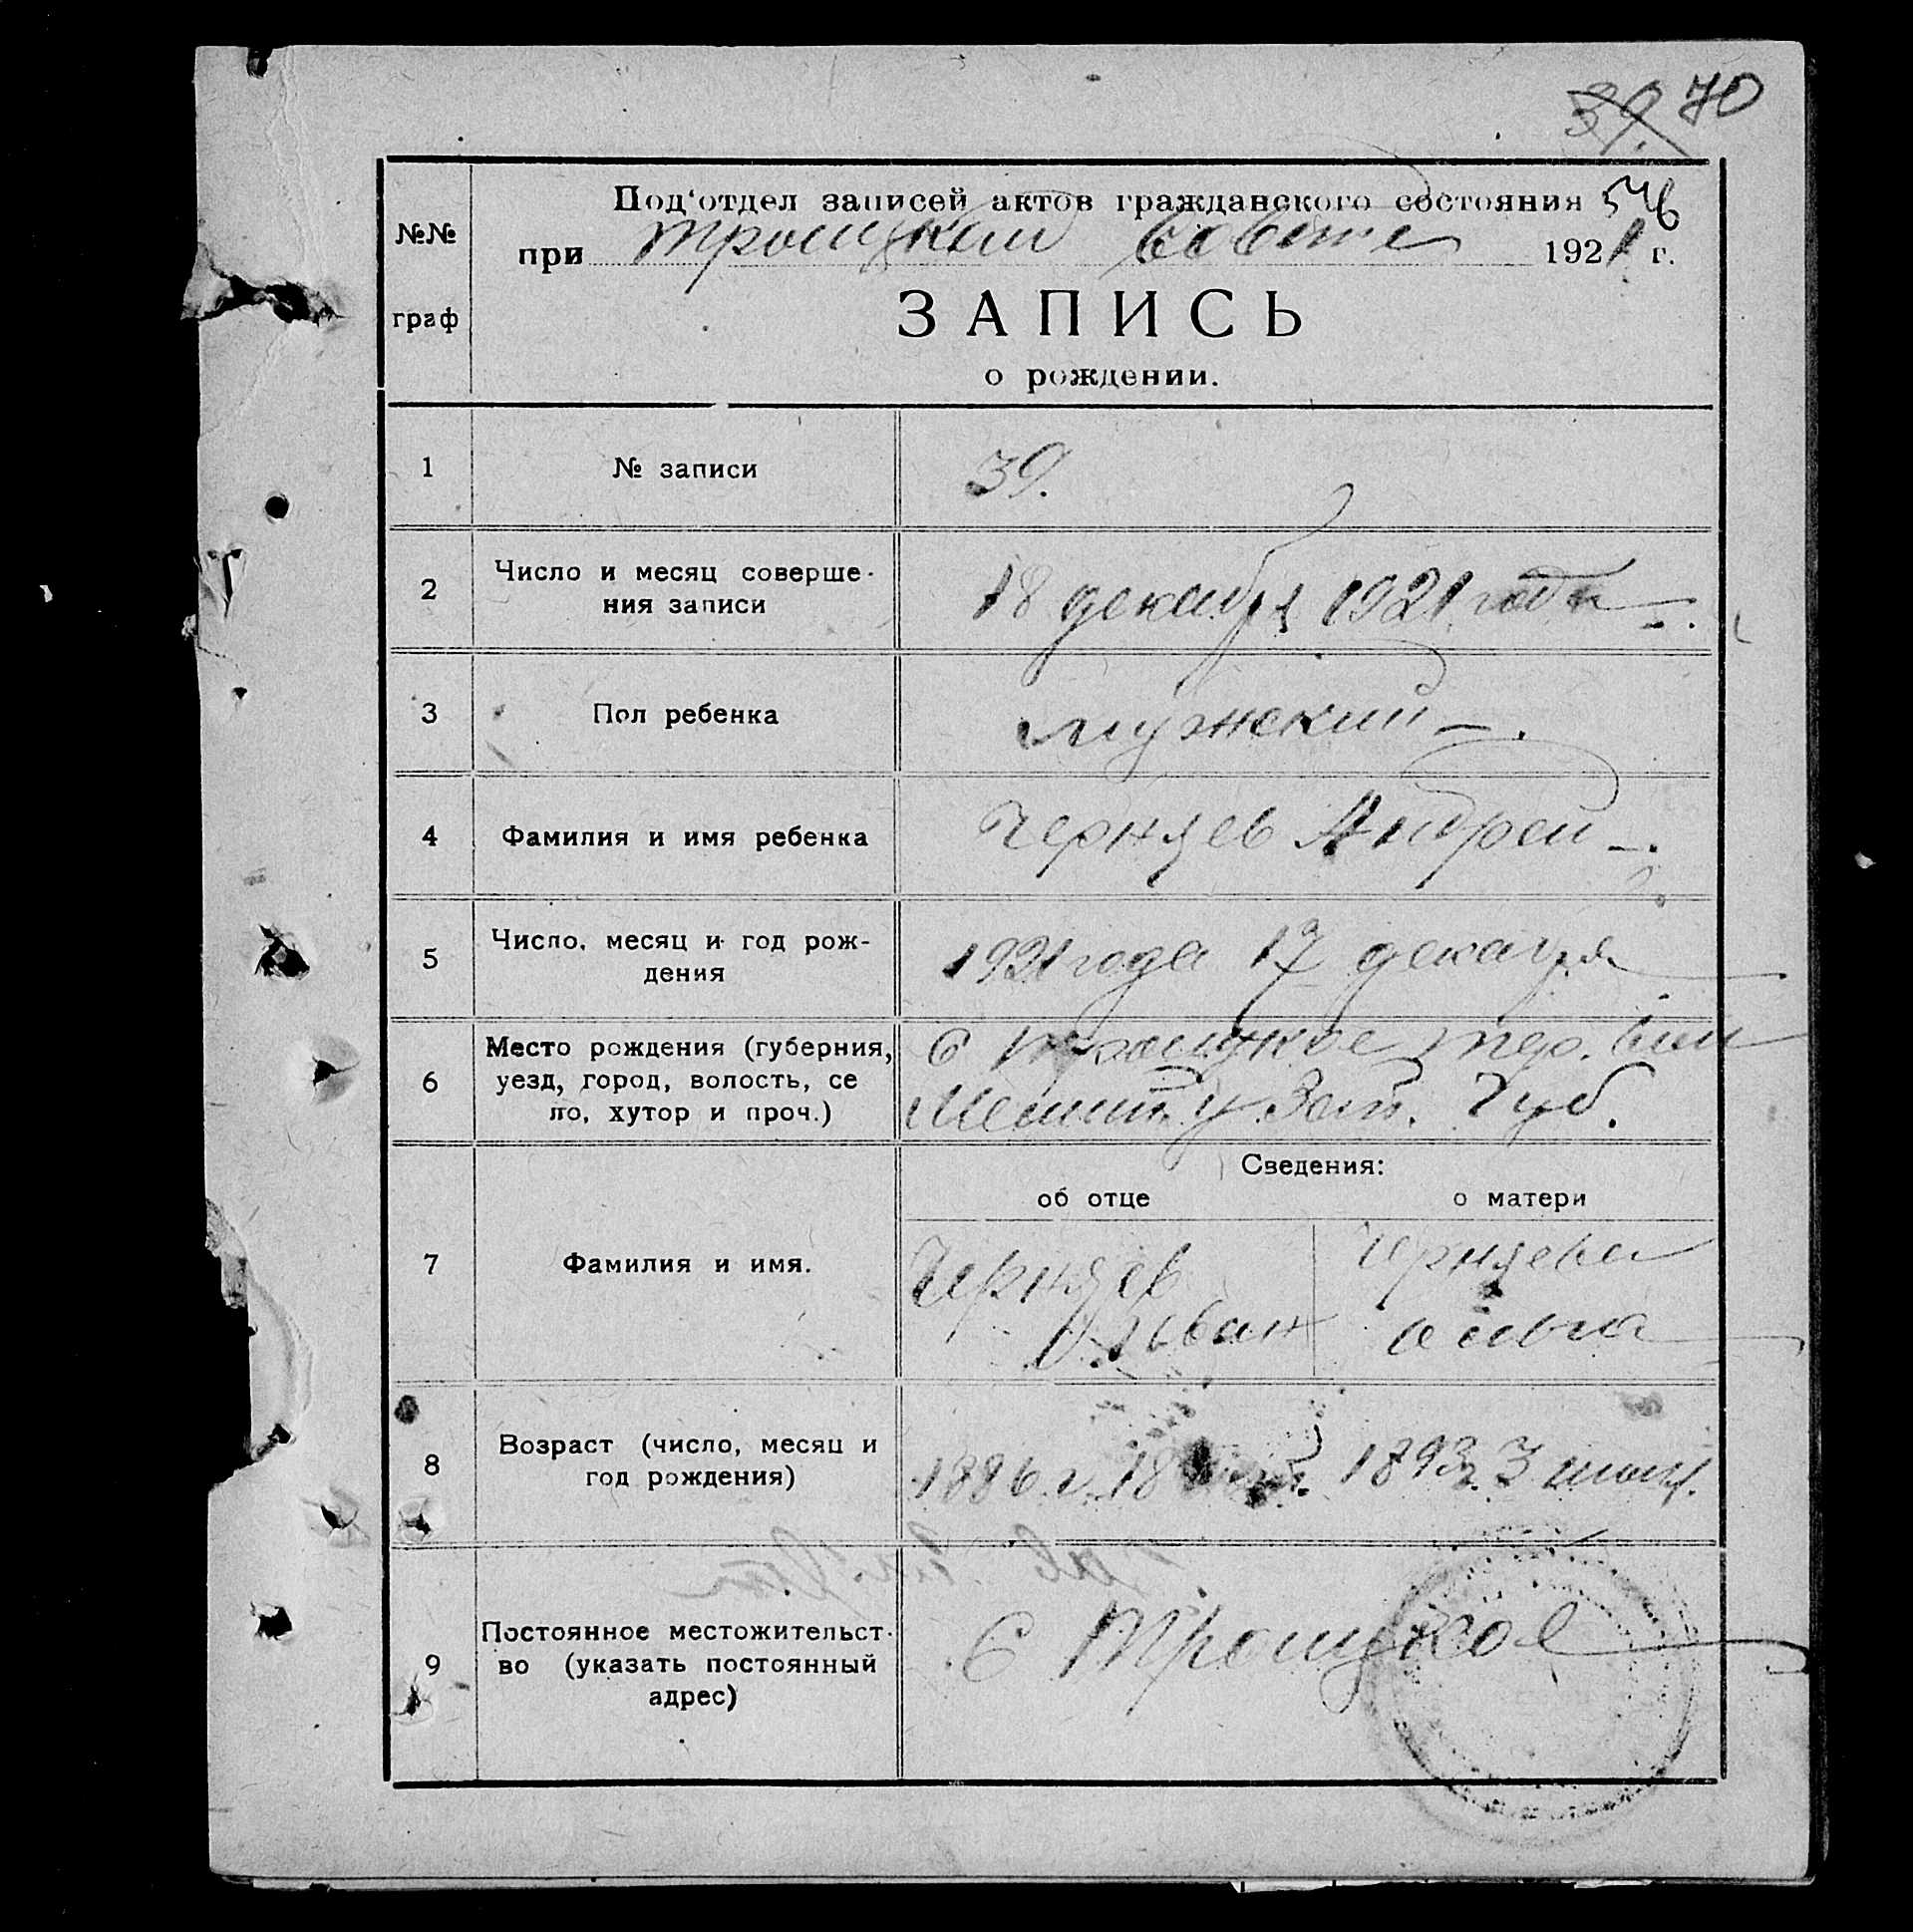 39. 70
Под'отдел записей актов гражданского состояния
№№
при Троицком Совете 1921 г.
граф
ЗАПИСЬ
о рождении.
1 № записи 39.
2 Число и месяц соверше-
ния записи 18 декабря 1921 года
3 Пол ребенка мужский
4 Фамилия и имя ребенка Черняев Андрей
5 Число, месяц и год рож-
дения 1921 года 17 декабря
Место рождения (губерния, С Троицкое тер.
6 уезд, город, волость, се
ло, хутор и проч.) у. Зап. Губ.
Сведения:
об отце о матери
7 Фамилия и имя.
Черняев Черняева
Иван
8 Возраст (число, месяц и
год рождения) 1886 г. 18 1893 г. 3
Постоянное местожительст-
9 во (указать постоянный С Троицкое
адрес)